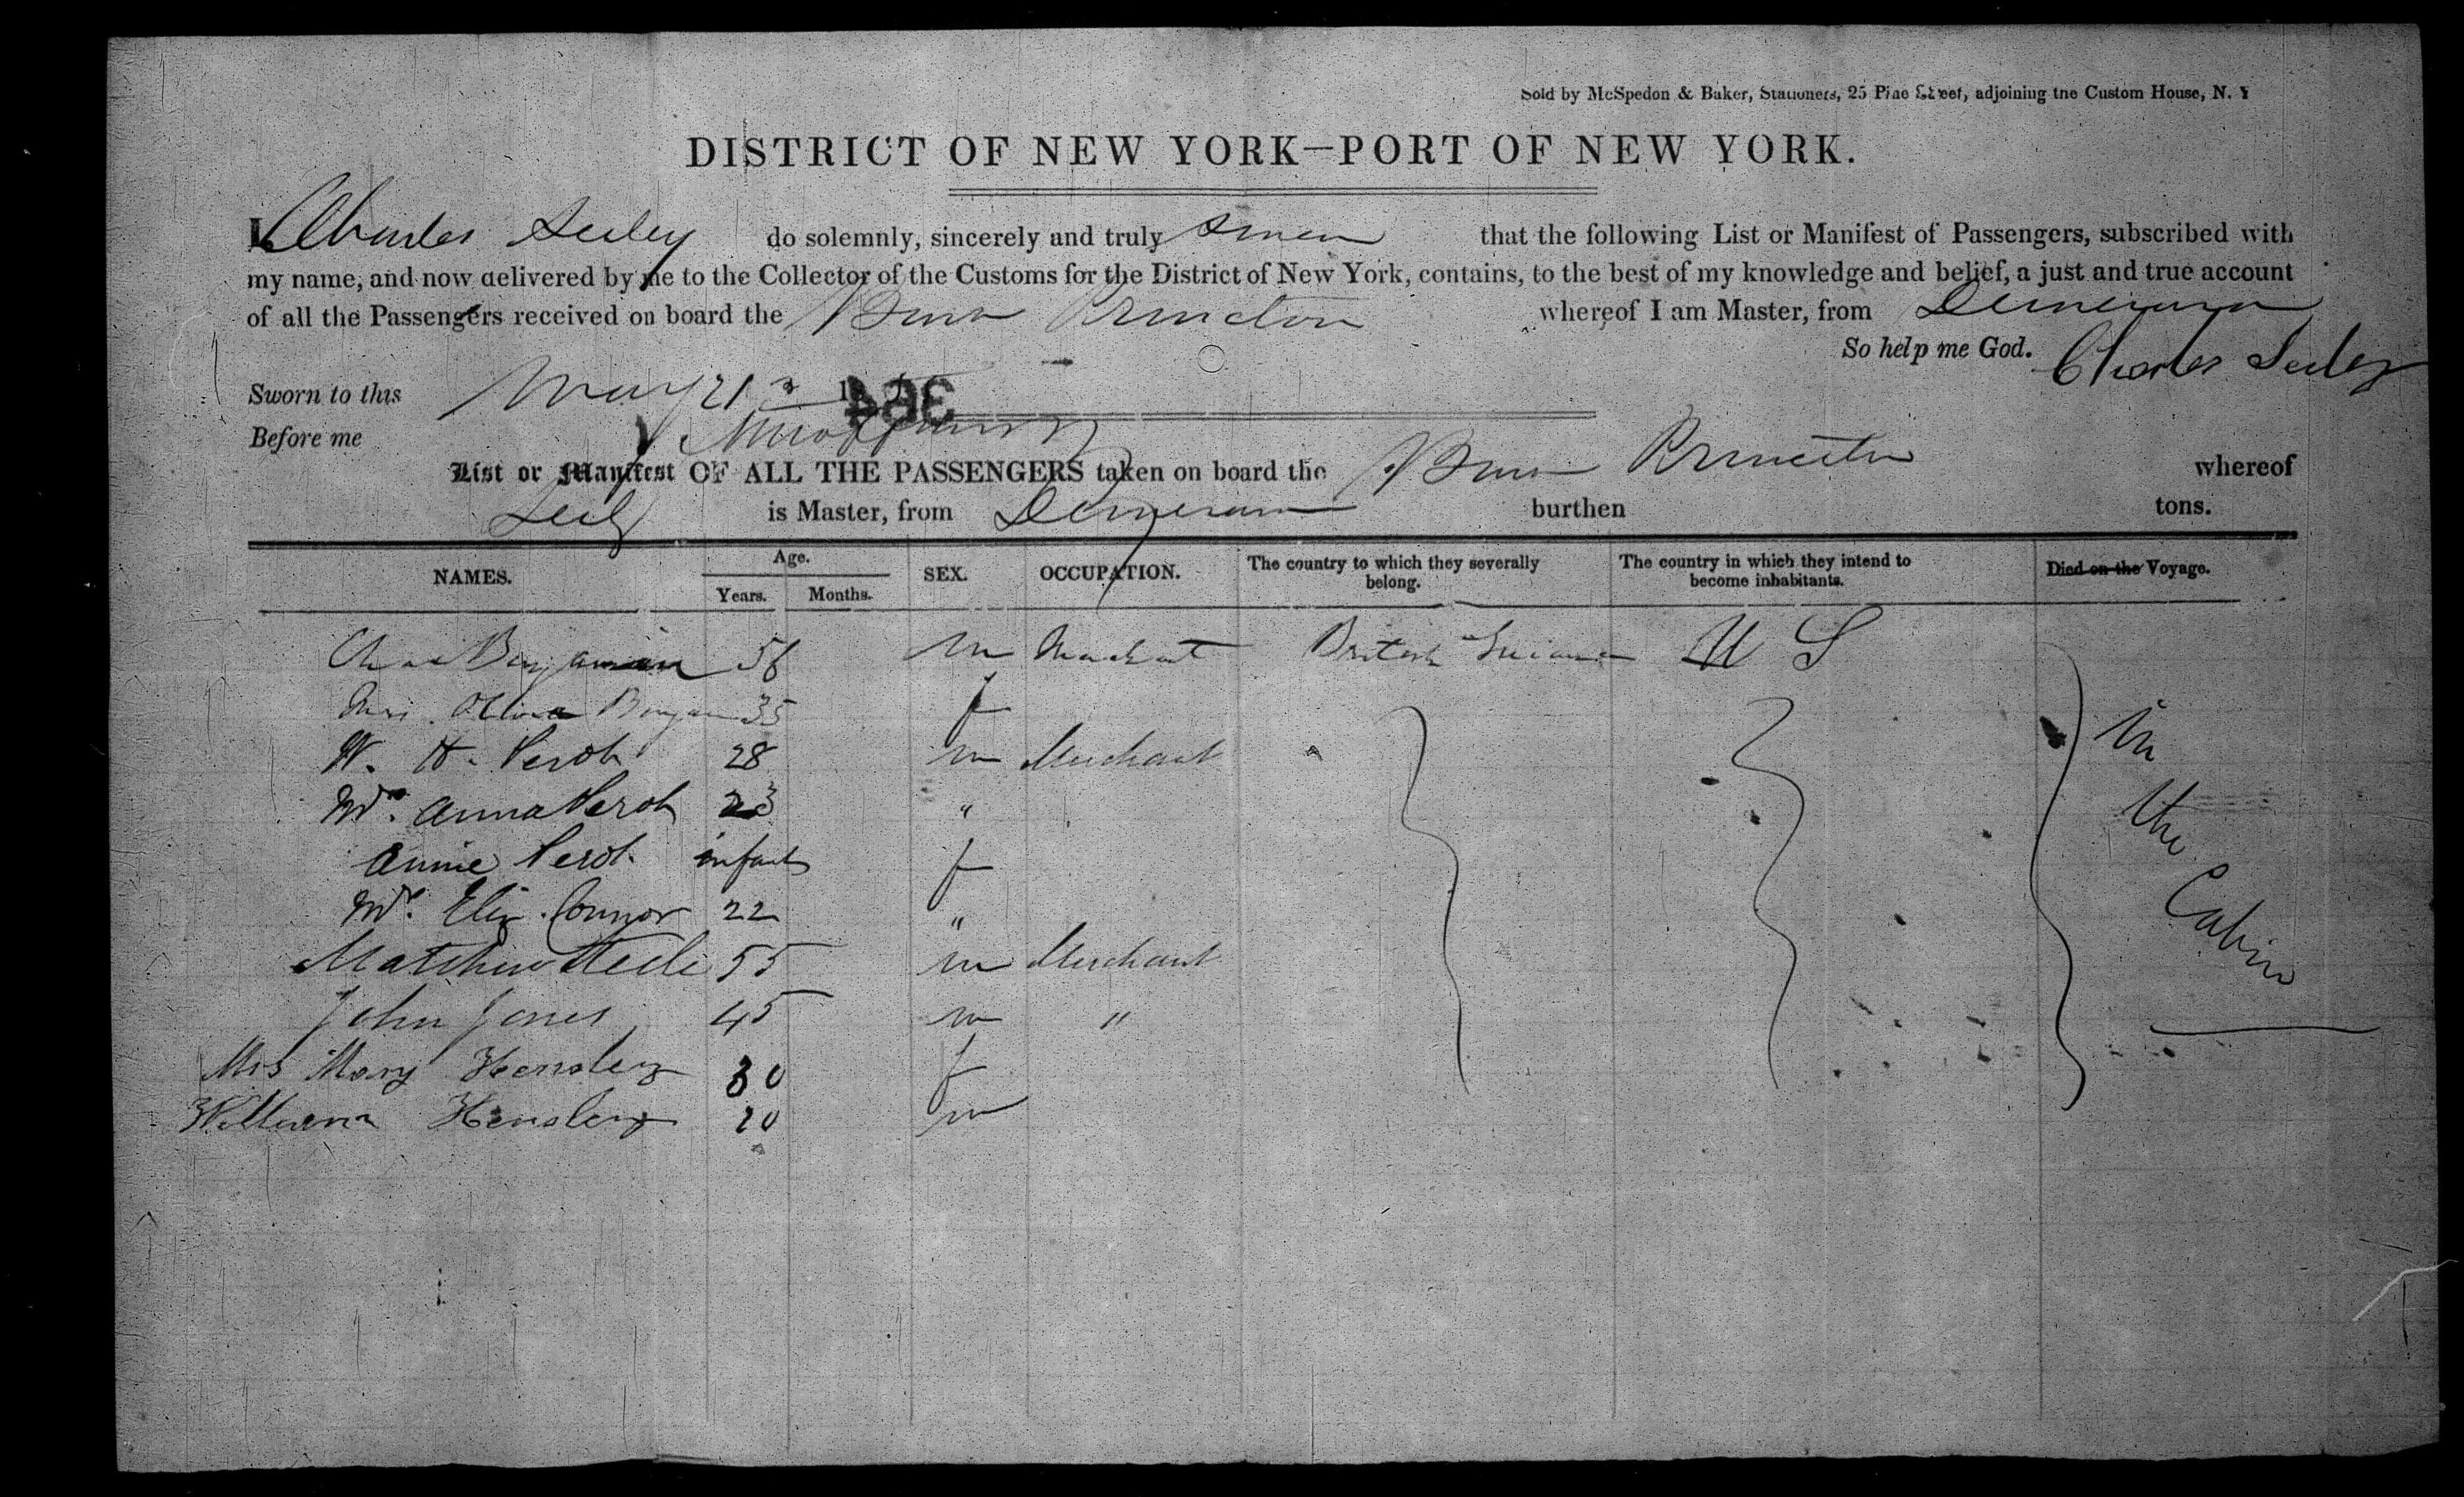 Sold by McSpedon & Baker, Stationers, 25 Pine Street, adjoining the Custom House, N. Y
DISTRICT OF NEW YORK—PORT OF NEW YORK.
I Charles Seeley do solemnly, sincerely and truly swear that the following List or Manifest of Passengers, subscribed with
my name, and now delivered by me to the Collector of the Customs for the District of New York, contains, to the best of my knowledge and belief, a just and true account
of all the Passengers received on board the Princeton whereof I am Master, from Demerara
So help me God. Charles Seeley
Sworn to this May 21 18 364
Before me
List or Manifest OF ALL THE PASSENGERS taken on board the Princeton whereof
Seely is Master, from Demerara burthen tons.
NAMES. Age. Years. Months. SEX. OCCUPATION. The country to which they severally belong. The country in which they intend to become inhabitants. Died on the Voyage.
Chas Benjamin 56 m Merchant British Guiana U S
Mrs. Benjamin 35 f
W. H. Perot 28 m Merchant
Mrs. Anna Perot 23 "
Annie Perot infant f
Mrs. Eliz. Connor 22 "
Matthew Steele 55 m Merchant
John Jones 45 m "
Mrs Mary Hensley 30 f
William Hensley 20 m
in the Cabin